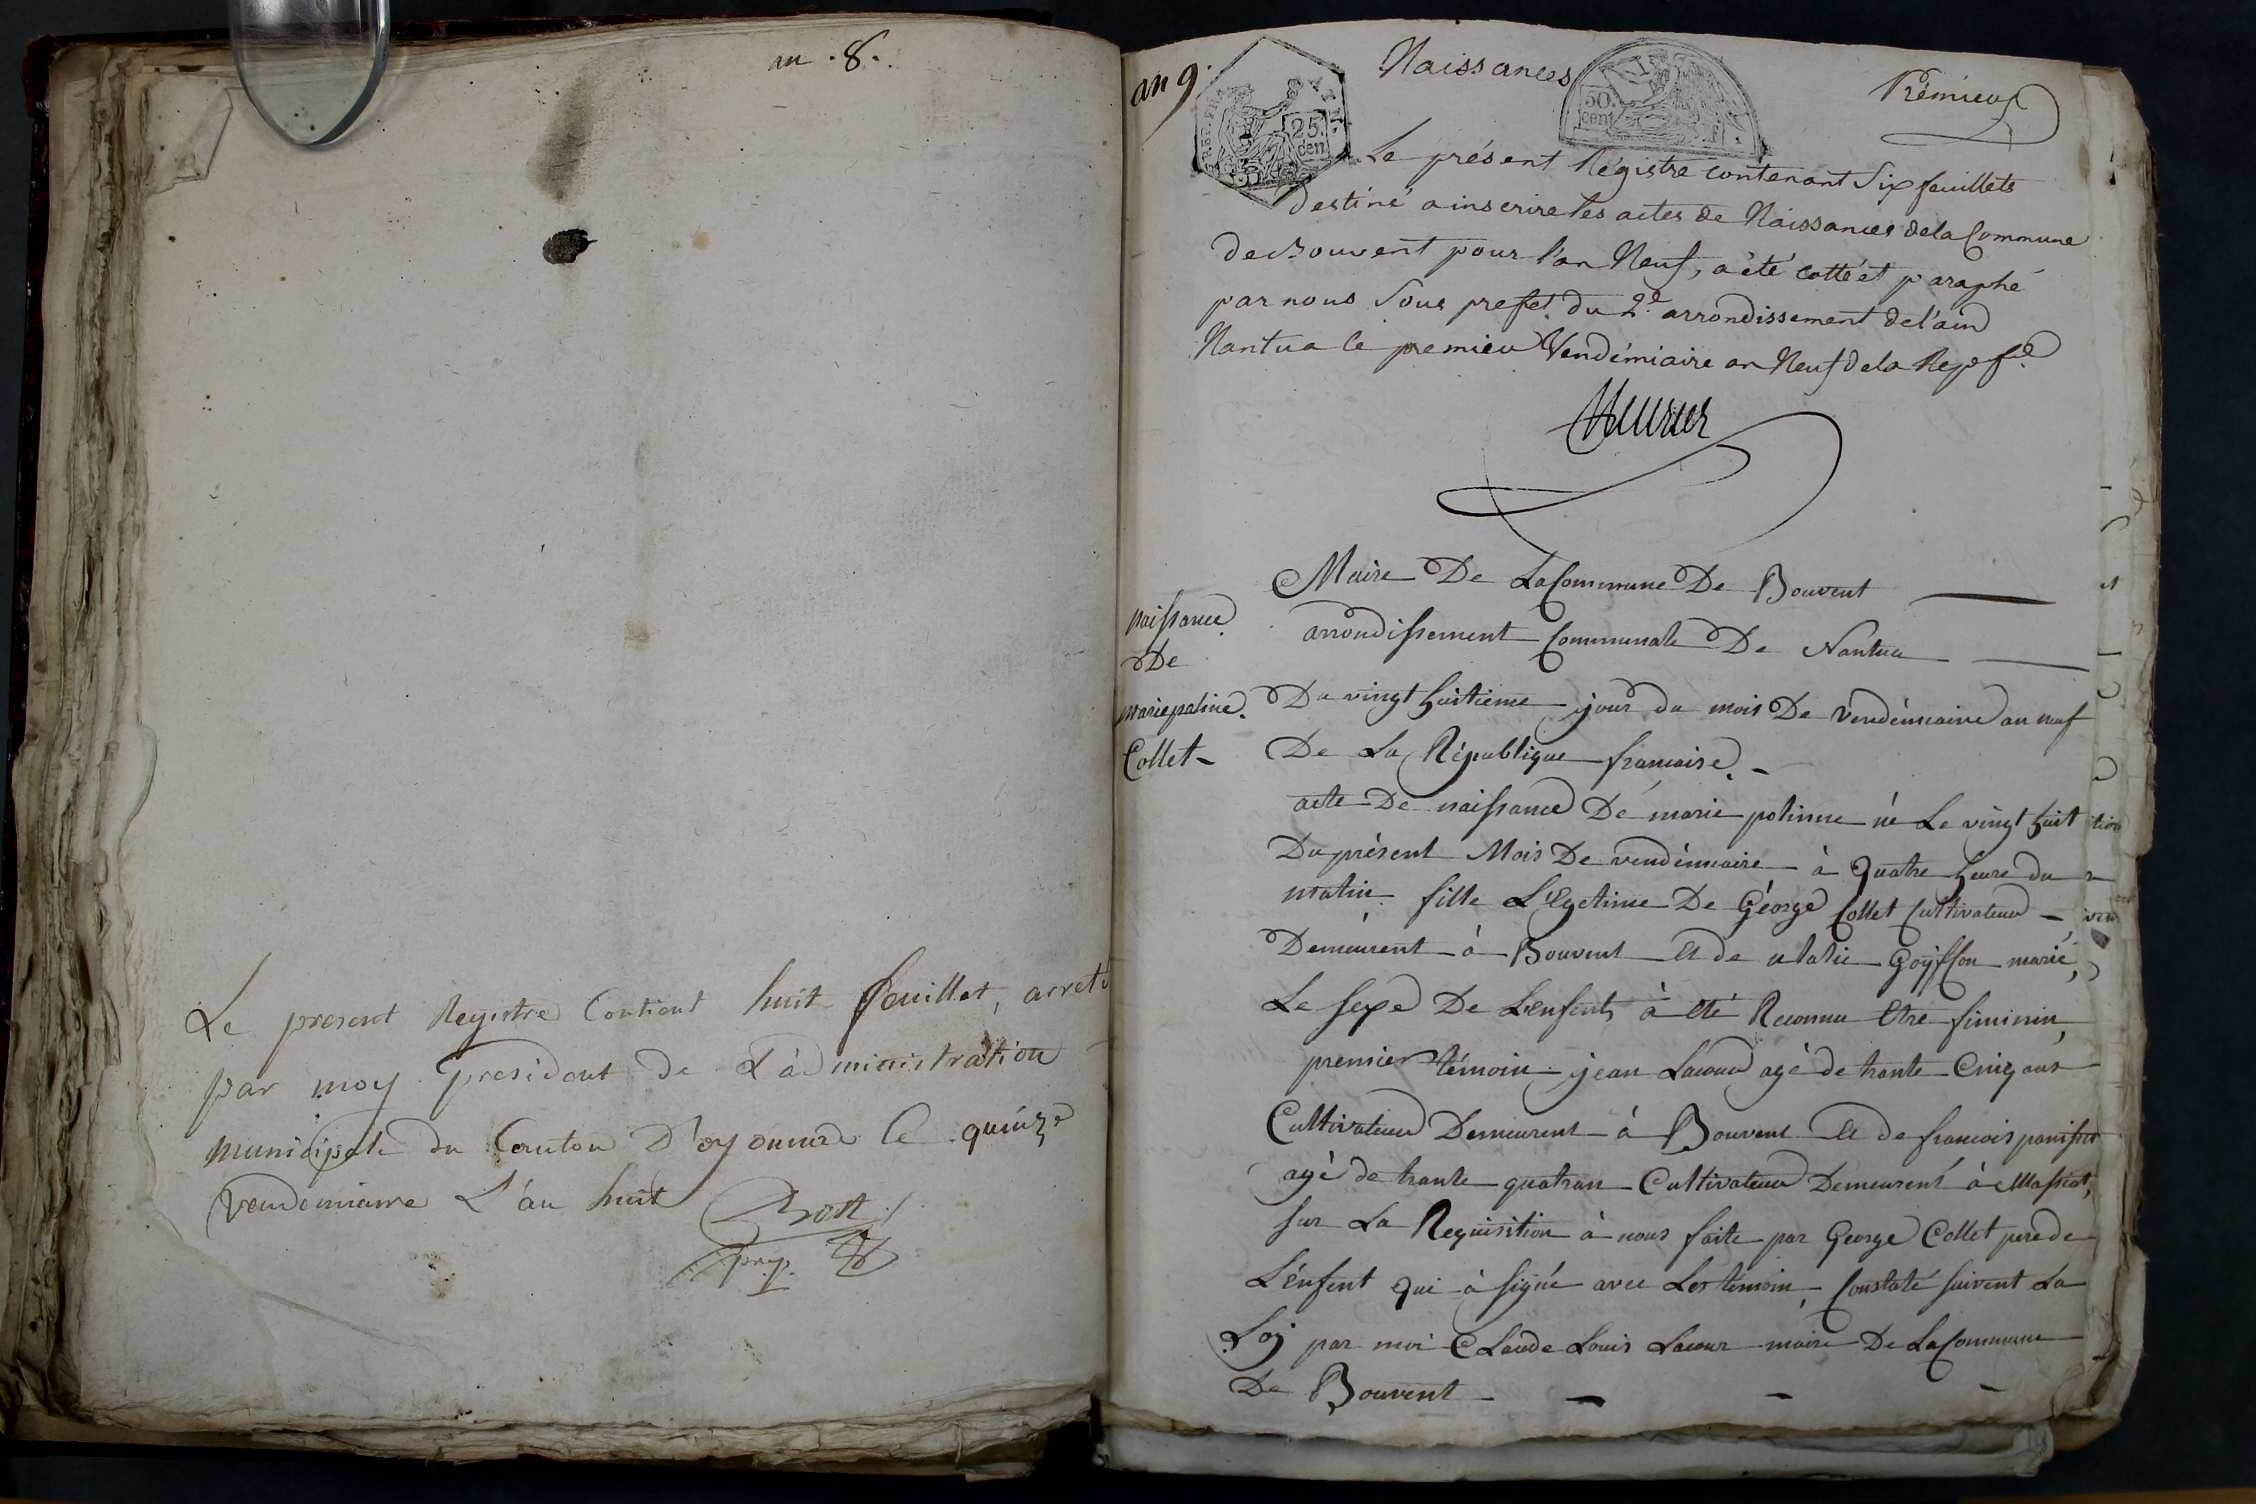 an .8.
Le present Registre Contient huit feuillet, arreté
par moy president de L'administration
municipale du Canton D'oyonnax le quinze
vendemiaire L'an huit
an 9.
Naissances
Prémier
REP. FRA.
25
den
50.
cent
Le présent Régistre contenant Six feuillets
destiné a inscrire les actes de Naissances de la Commune
de Bouvent pour l'an Neuf, a été cotté et paraphé
par nous Sous prefet du 2e arrondissement de l'ain
Nantua le premier Vendémiaire an Neuf de la Rep. fe.
Maire De La Commune De Bouvent
arrondissement Communale De Nantua
naissance
De
marie paline
Collet
Du vingt huitieme jour du mois De vendémiaire an neuf
De La République francaise.
acte De naissance De marie polinne né Le vingt huit
Du présent Mois De vendémiaire à quatre heure du
matin fille Légetime De Géorge Collet Cultivateur
Demeurent à Bouvent et de ulalie Goyffon marié,
Le sexe De L'enfent à été Reconnu Etre feminin,
premier témoin jean Lacour agé de trante Cinq ans
Cultivateur Demeurent à Bouvent et de francois
agé de trante quatran Cultivateur Demeurent à Massiat,
sur La Requisition à nous faite par George Collet pere de
L'énfent qui à signé avec Les témoin, Constaté suivent La
Loj par moi Claude Louis Lacour maire De La Commune
De Bouvent